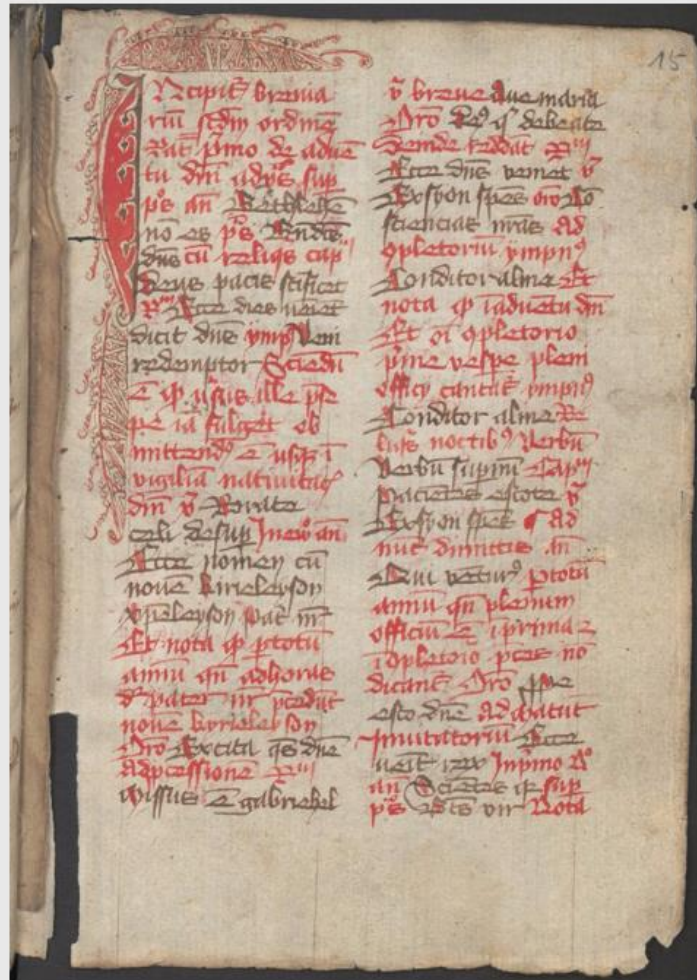 15
INcipit brevia
riū scdm ordinē
Rat p̄mo de aduē
tu dm̄ ad vp̄s sup
p̄s an̄ Bethleē
nō es p̄s Bn̄dc̄s
dn̄s cū reliq̄s cap̄m
Deus pacis sc̄ificet
Rm̄ Ecce dies veīet
dicit dn̄s ymp̄ Veni
redemptor Sciedū
ē qp v̄sus ille p̄se
pe iā fulget ob
mittend9 ē usqz ī
vigiliā nativitat̄
dm̄ v̄ Rorate
celi desup In ew̄o an̄
Ecce nomen cū
novē kirieleyson
xp̄eleyson pat̄ nr̄
Et nota qp p̄totū
annū qn̄ ad horas
dr̄ pater nr̄ p̄cedūt
novē kyrieleyson
Oro Excita q̄s dn̄e
Ad p̄cessionē Rm̄
Missus ē gabrihel
v̄ breve Ave maria
Oro De9 q̄ de beate
Deinde reddat Rm̄
Ecce dn̄s veniet v̄
Ex syon sp̄es oro Cō
sciencias nr̄as Ad
9pletoriū ympn9
Conditor alme Et
nota qp ī aduētu dn̄
Et oī 9pletorio
p̄me vesp̄e pleni
officij cantat̄ ympn9
Conditor alme Re
liq̄s noctib9 Verbū
Verbū sup̄nū Cap̄m
Pacientes estote v̄
Ex syon sp̄es Ad
nūc dimittis An̄
Qui ventur9 p̄totū
annū qn̄ plenum
officiū ē ī prima
ī 9pletorio p̄ces nō
dicant̄ Oro
esto dn̄e Ad matut̄
Invitatoriū Ecce
venit rex In p̄mo no
an̄ Scientes qz sup
p̄s Bt̄s vir Nota